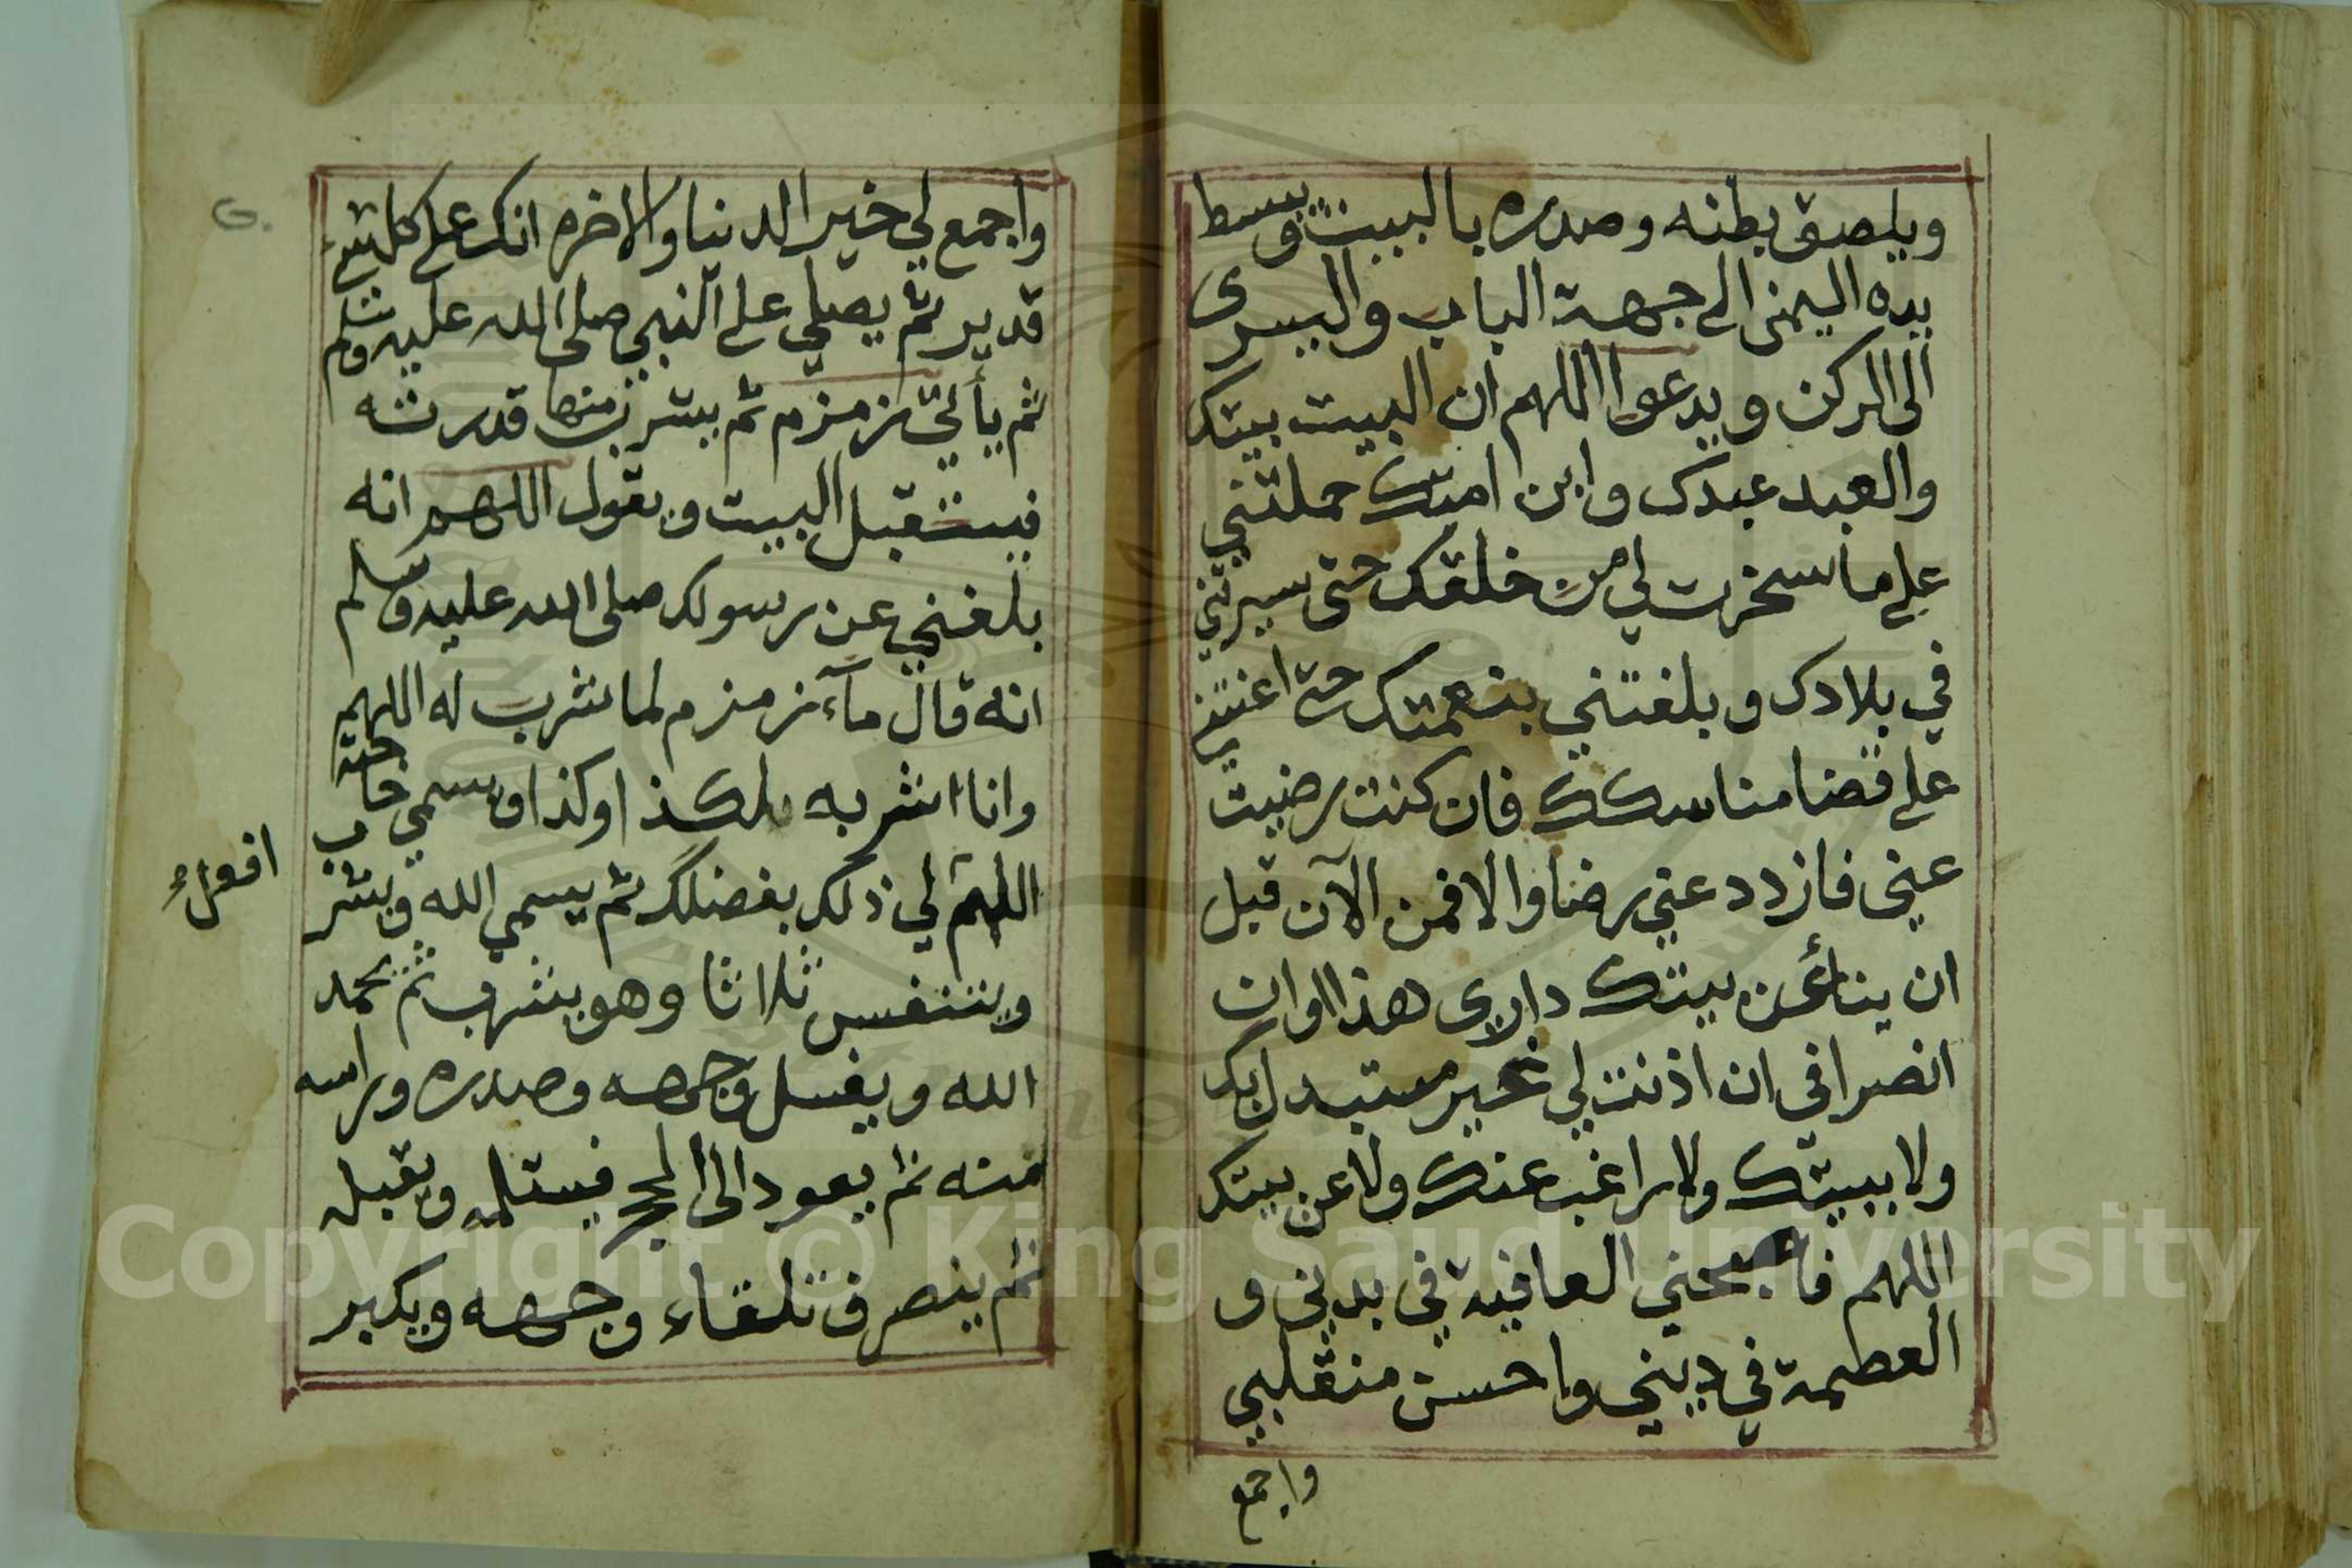 ويلصق بطنه وصدره بالبيت ويبسط
يده اليمنى الى جهة الباب واليسرى
الى الركن ويدعوا اللهم ان البيت بيتك
والعبد عبدك وابن امتك حملتني
على ما سخرت لي من خلقك حتى سيرتني
في بلادك وبلغتني بنعمتك حتى اعنتني
على قضا مناسكك فان كنت رضيت
عني فازدد عني رضا والا فمن الآن قبل
ان ينأى عن بيتك داري هذا اوان
انصرافي ان اذنت لي غير مستبدل بك
ولا ببيتك ولا راغب عنك ولا عن بيتك
اللهم فاصحبني العافية في بدني و
العصمة في ديني واحسن منقلبي
واجمع
واجمع لي خير الدنيا والاخره انك على كل شيء
قدير ثم يصلي على النبي صلى الله عليه وسلم
ثم يأتي زمزم ثم يشرب منها قدر ته
فيستقبل البيت ويقول اللهم انه
بلغني عن رسولك صلى الله عليه وسلم
انه قال مآء زمزم لما شرب له اللهم
وانا اشربه لكذا وكذا ويسمي حاجته
افعل
اللهم لي ذلك بفضلك ثم يسمي الله ويشرب
ويتنفس ثلاثا وهو يشرب ثم يحمد
الله ويغسل وجهه وصدره وراسه
منه ثم يعود الى الحجر فيستلمه ويقبله
ثم ينصرف تلقاء وجهه ويكبر
Copyright © King Saud University